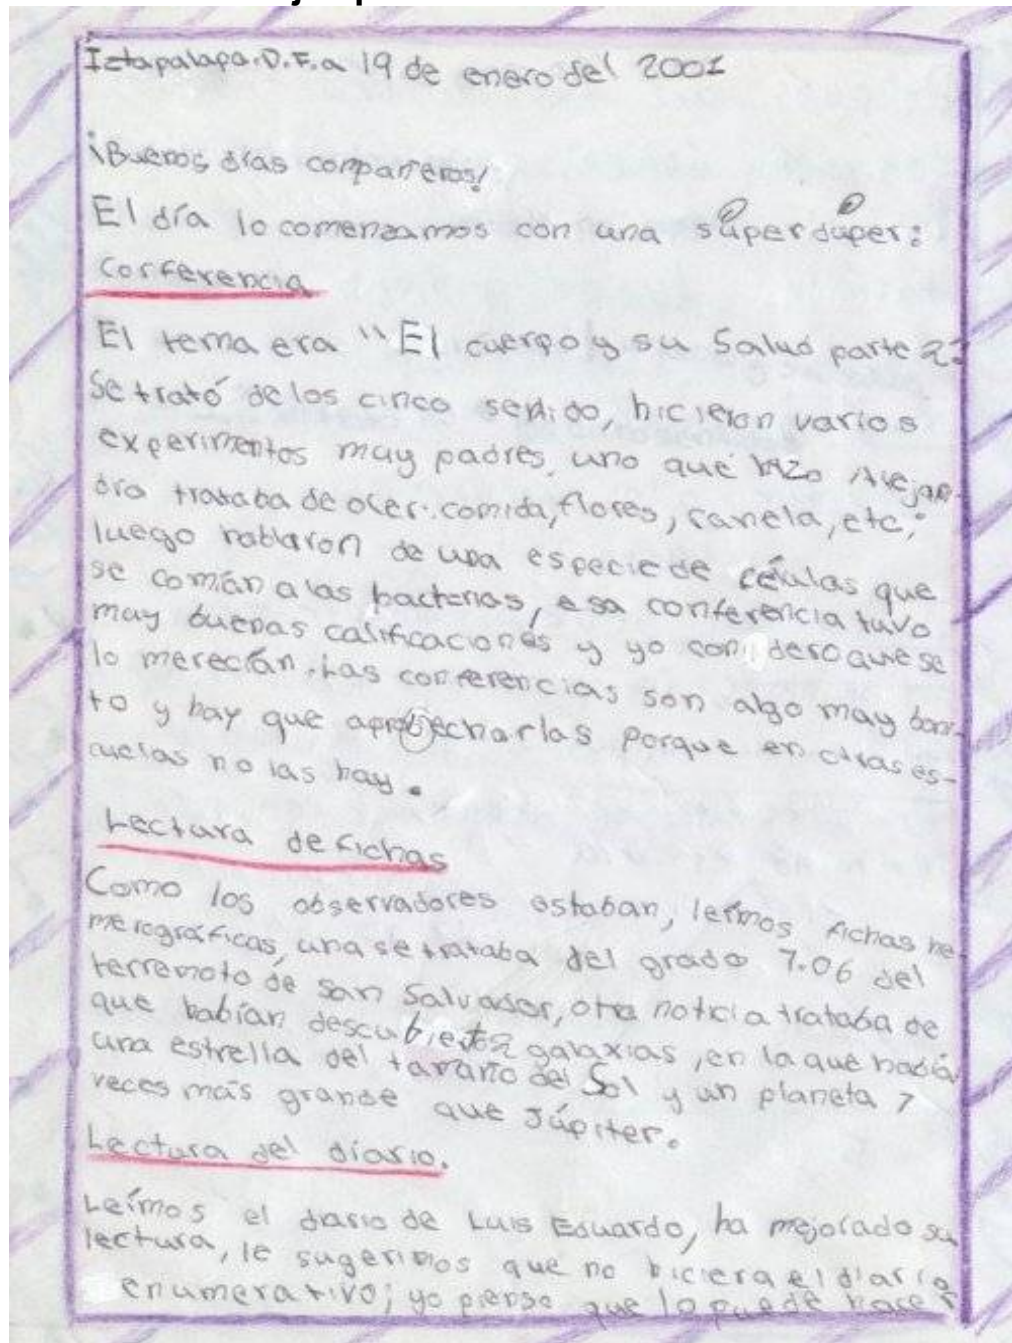 Iztapalapa.D.F.a 19 de enero del 2001
¡Buenos días compañeros!
El día lo comenzamos con una súper dúper:
Conferencia
El tema era "El cuerpo y su Salud parte 2"
Se trató de los cinco sentido, hicieron varios
experimentos muy padres, uno que hizo Alejan-
dra trataba de oler: comida, flores, canela, etc;
luego hablaron de una especie de células que
se comán a las bacterias, esa conferencia tuvo
muy buenas calificacionés y yo considero que se
lo merecían. Las conferencias son algo muy boni-
to y hay que aprobecharlas porque en otras es-
cuelas no las hay.
Lectura de fichas
Como los observadores estaban, leímos fichas he-
merográficas, una se trataba del grado 7.06 del
terremoto de San Salvador, otra noticia trataba de
que habían descubierto 2 galaxias, en la que había
una estrella del tamaño del Sol y un planeta 7
veces más grande que Júpiter.
Lectura del diario.
Leímos el diario de Luis Eduardo, ha mejorado su
lectura, le sugerimos que no hiciera el diario
enumerativo; yo pienso que lo puede hacer